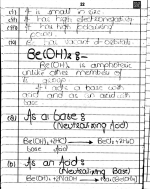 (i) It is small in size.
(ii) It has high electronegativity
(iii) It has high polarizing
power
(iv) It has vacant d-orbitals
Be(OH)₂ :-
Be(OH)₂ is amphoteric
unlike other members of
group
It acts a base with
acid and as an acid with
base
(a) As a base :
(Neutralizing Acid)
Be(OH)₂ + 2HCl → BeCl₂ + 2H₂O
base acid
(b) As an Acid :
(Neutralizing Base)
Be(OH)₂ + 2NaOH → Na₂(Be(OH)₄)